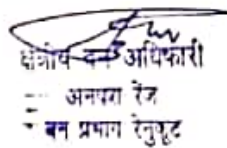 क्षेत्रीय वन अधिकारी
अनपरा रेंज
वन प्रभाग रेनुकूट